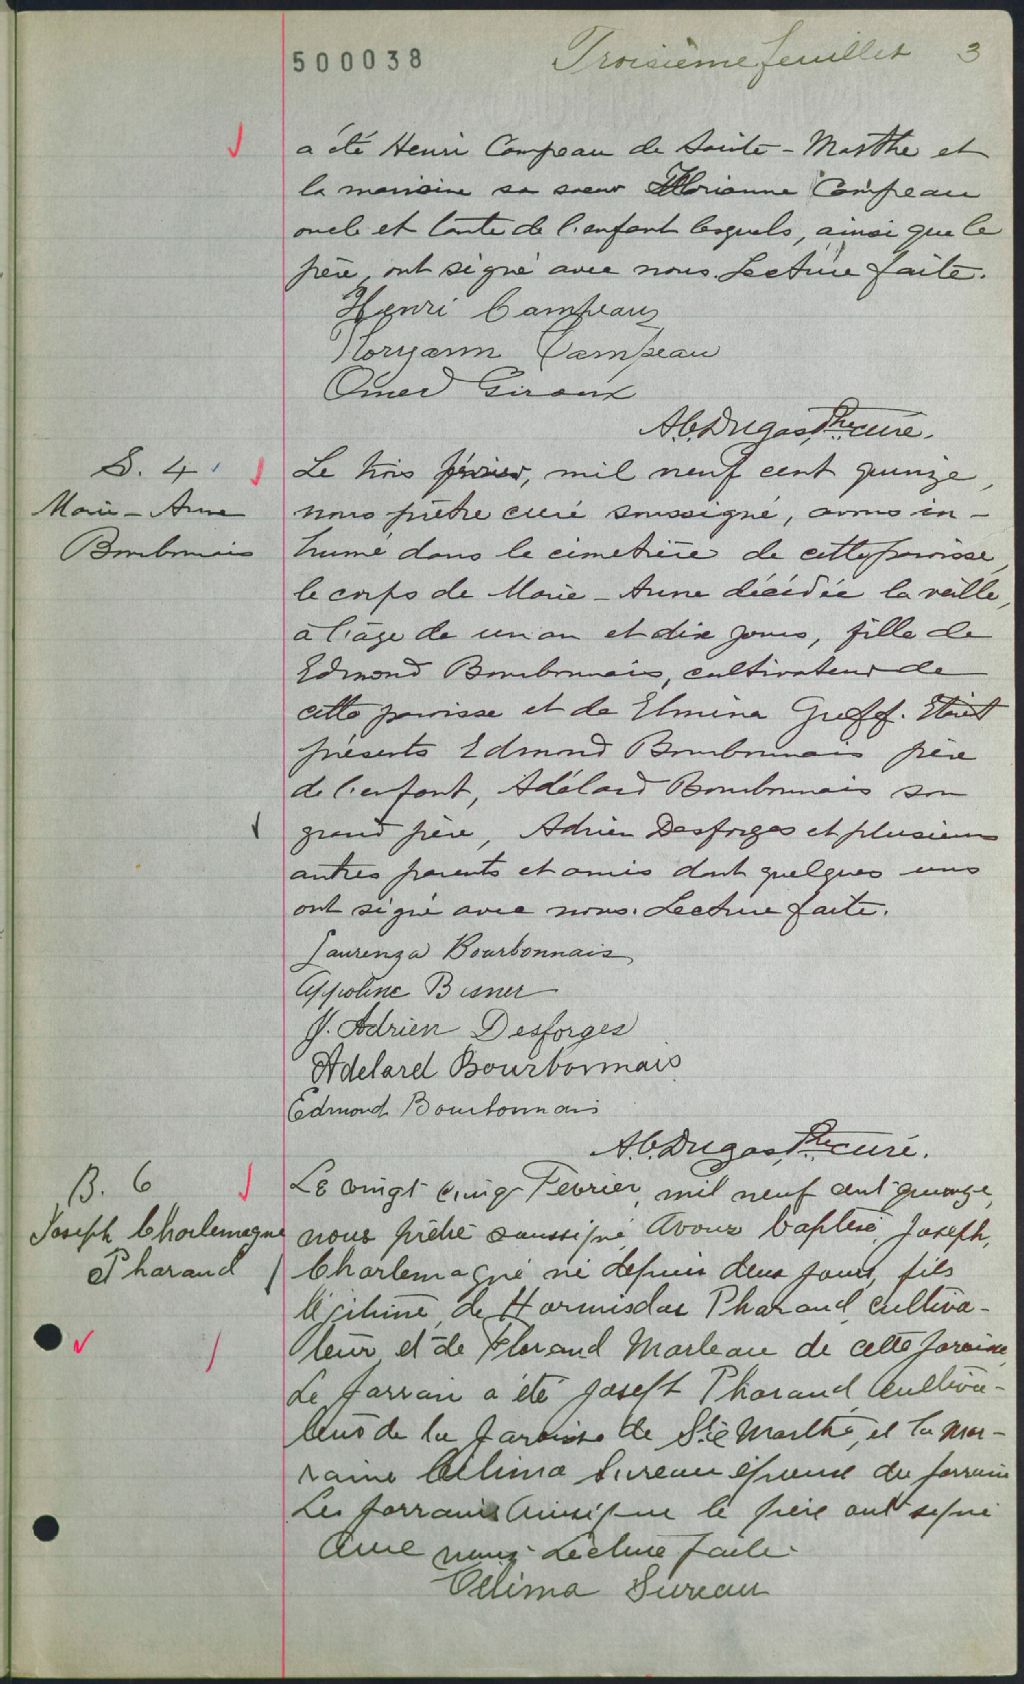 500038 Troisième feuillet 3
a été Henri Campeau de Sainte-Marthe et
la marraine sa soeur Florianne Campeau
oncle et tante de l'enfant lesquels, ainsi que le
père, ont signé avec nous. Lecture faite.
Henri Campeau
Floryann Campeau
Omer Giroux
A.C. Dugas, Ptre curé.
S. 4
Marie-Anne
Bourbonnais
Le trois février, mil neuf cent quinze,
nous prêtre curé soussigné, avons in-
humé dans le cimetière de cette paroisse,
le corps de Marie-Anne décédée la veille,
à l'âge de un an et dix jours, fille de
Edmond Bourbonnais, cultivateur de
cette paroisse et de Elmina Greff. Etaient
présents Edmond Bourbonnais père
de l'enfant, Adélard Bourbonnais son
grand père, Adrien Desforges et plusieurs
autres parents et amis dont quelques uns
ont signé avec nous. Lecture faite.
Laurenza Bourbonnais
Appoline Besner
J. Adrien Desforges
Adelard Bourbonnais
Edmond Bourbonnais
A.C. Dugas, Ptre curé.
B. 6
Joseph Charlemagne
Pharand
Le vingt cinq Fevrier, mil neuf cent quinze,
nous prêtre soussigné, avons baptisé, Joseph,
Charlemagne né depuis deux jours, fils
légitime, de Hormisdas Pharand, cultiva-
teur, et de Florand Marleau de cette paroisse
Le parrain a été Joseph Pharand, cultiva-
teur de la paroisse de Ste Marthe, et la mar-
raine Célima Sureau épouse du parrain
Les parrains ainsi que le père ont signé
avec nous. Lecture faite.
Célima Sureau